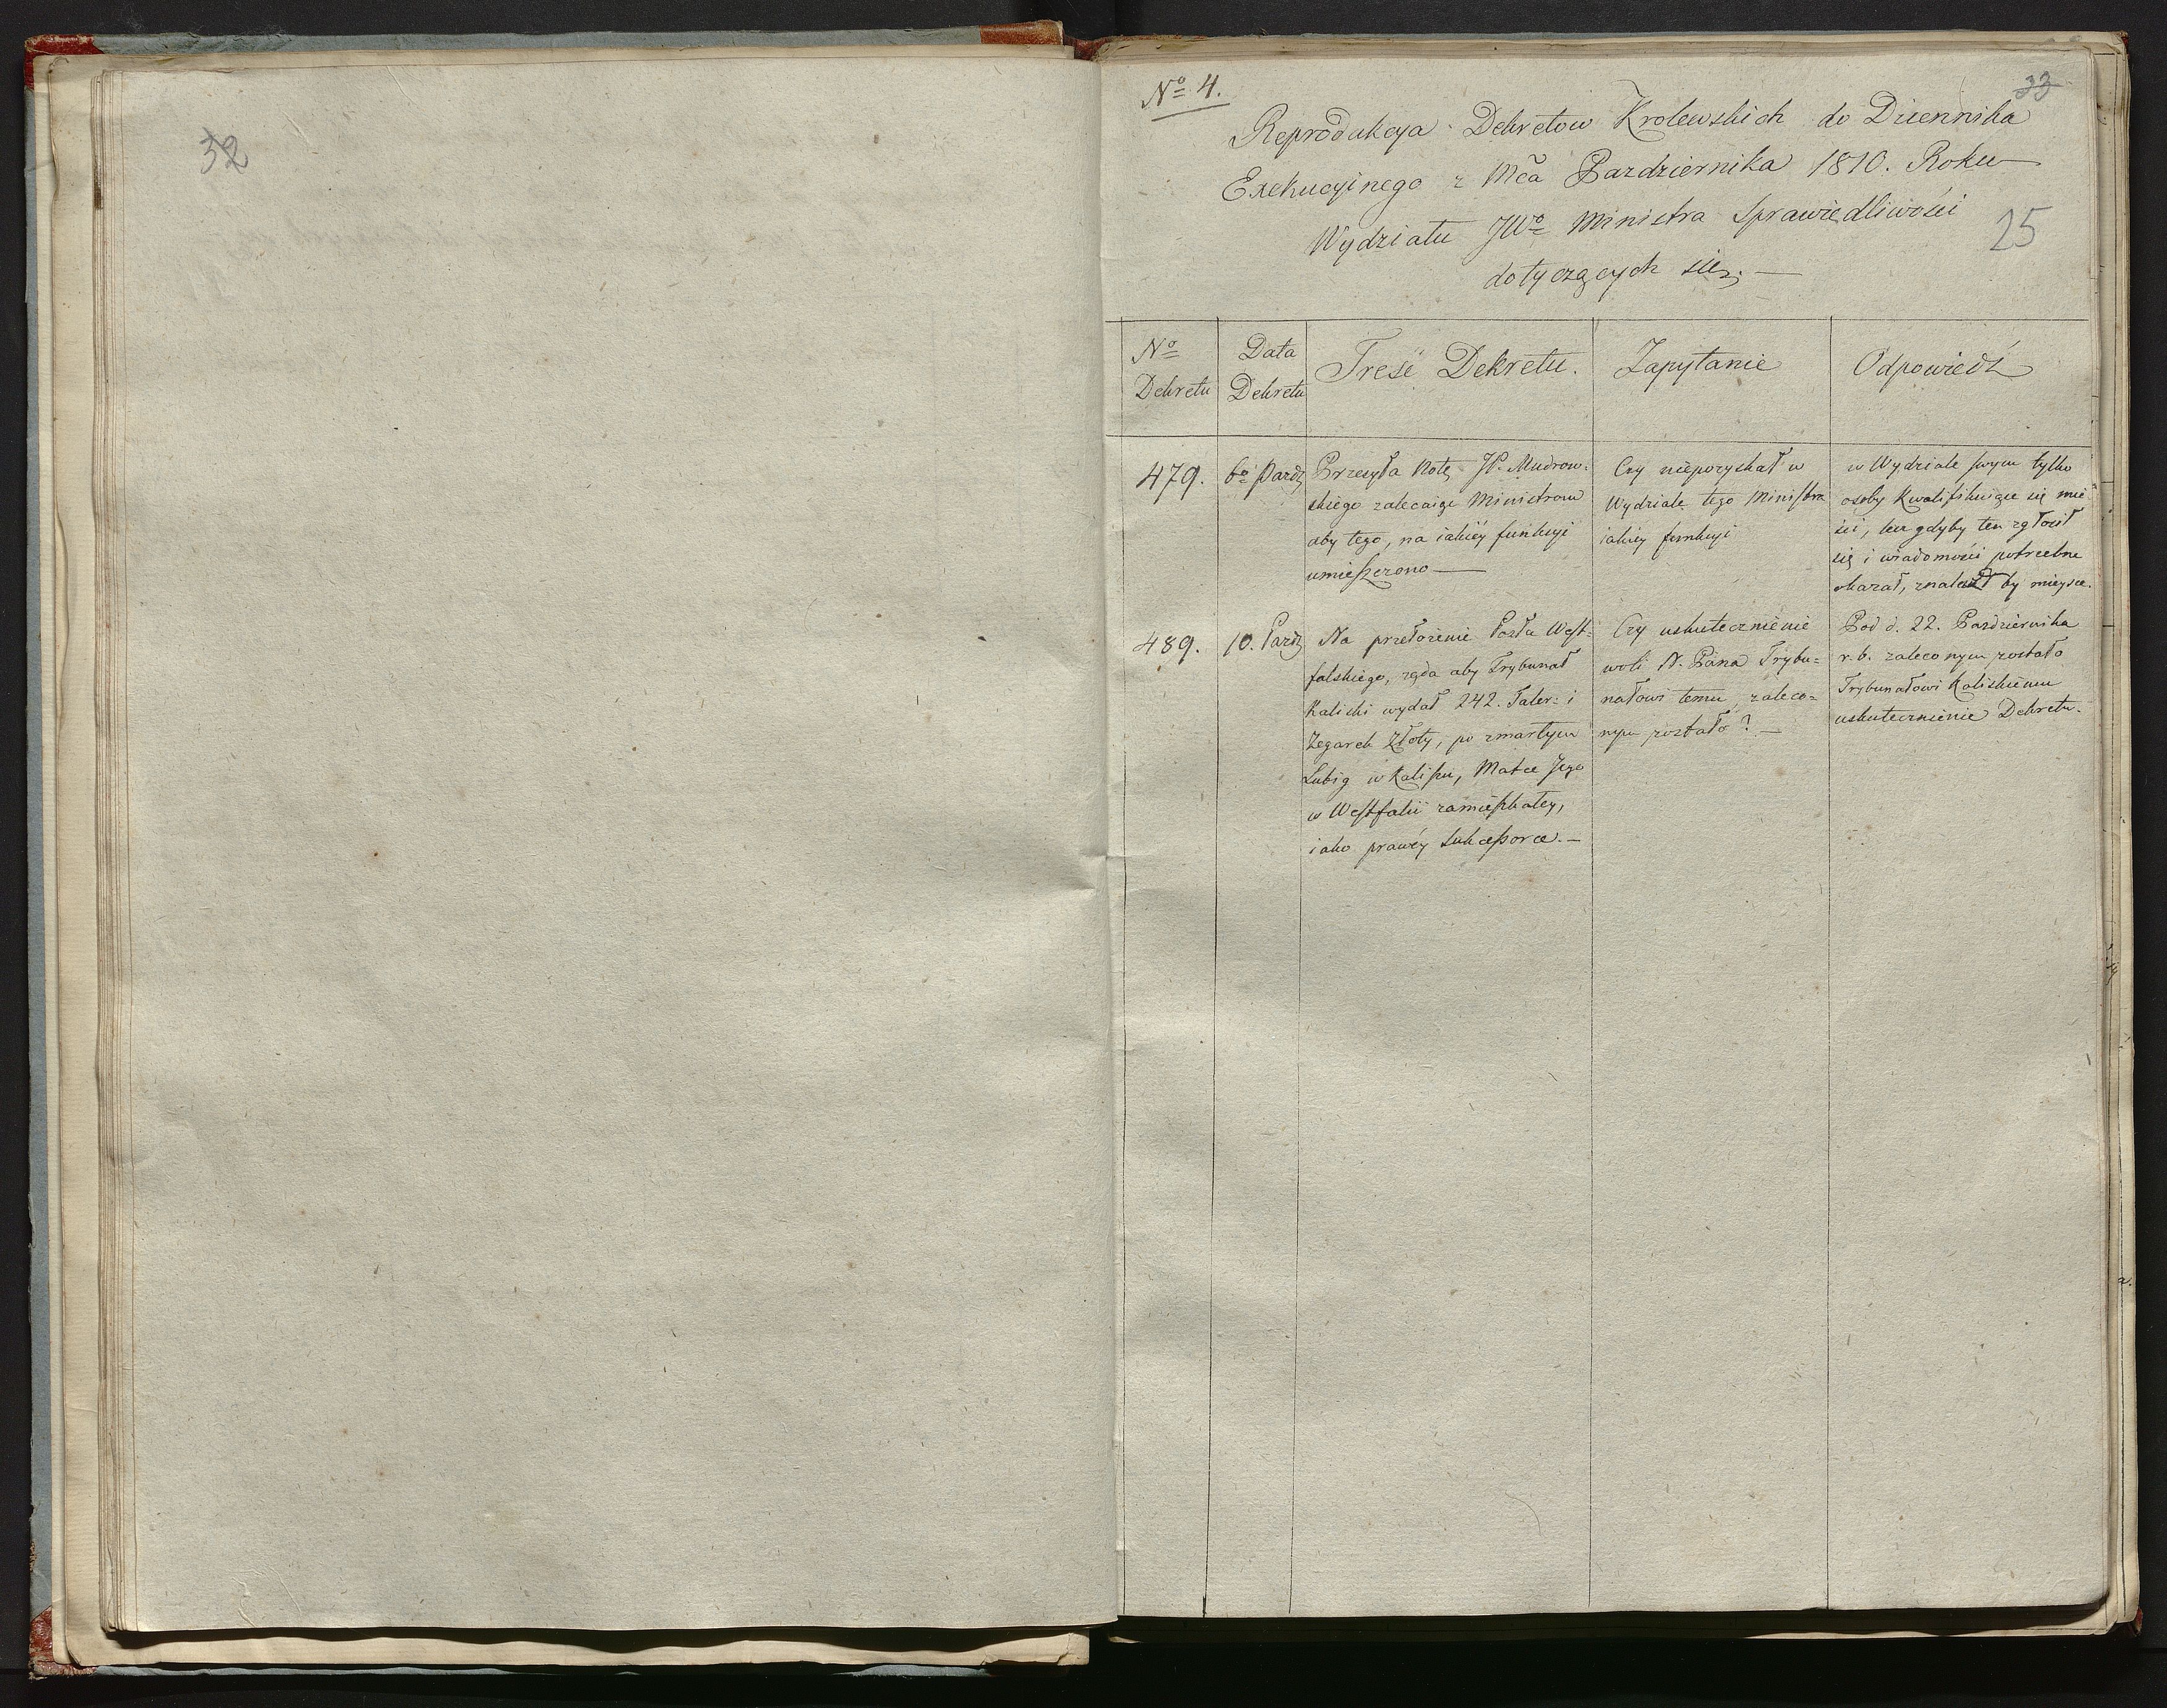 32
No 4.
33
Reprodukcya Dekretow Krolewskich do Dziennika
Exekucyinego z Mca Pazdziernika 1810. Roku
Wydziału JWo Ministra Sprawiedliwości
25
dotyczących się. —
No Dekretu
Data Dekretu
Treść Dekretu.
Zapytanie
Odpowiedź
479.
6o Pazdz
Przesyła Notę JP. Mudrow=
skiego zalecaiąc Ministrom
aby tego, na iakiéy funkcyi
umieszczono —
Czy niepozyskał w
Wydziale tego Ministra
iakiey funkcyi
w Wydziale swym tylko
osoby kwalifikuiące się mie=
ści, lecz gdyby ten zgłosił
się i wiadomości potrzebne
okazał, znalazł by mieysce.
489.
10. Pazdz
Na przełożenie Posła West=
falskiego, żąda aby Trybunał
Kaliski wydał 242. Taler: i
Zegarek Złoty, po zmarłym
Lubig w Kaliszu, Matce Jego
w Westfalii zamieszkałey,
iako prawéy Sukcessorce. —
Czy uskutecznienie
woli N. Pana Trybu=
nałowi temu zaleco=
nym zostało? —
Pod d. 22. Pazdziernika
r. b. zaleconym zostało
Trybunałowi Kaliskiemu
uskutecznienie Dekretu.